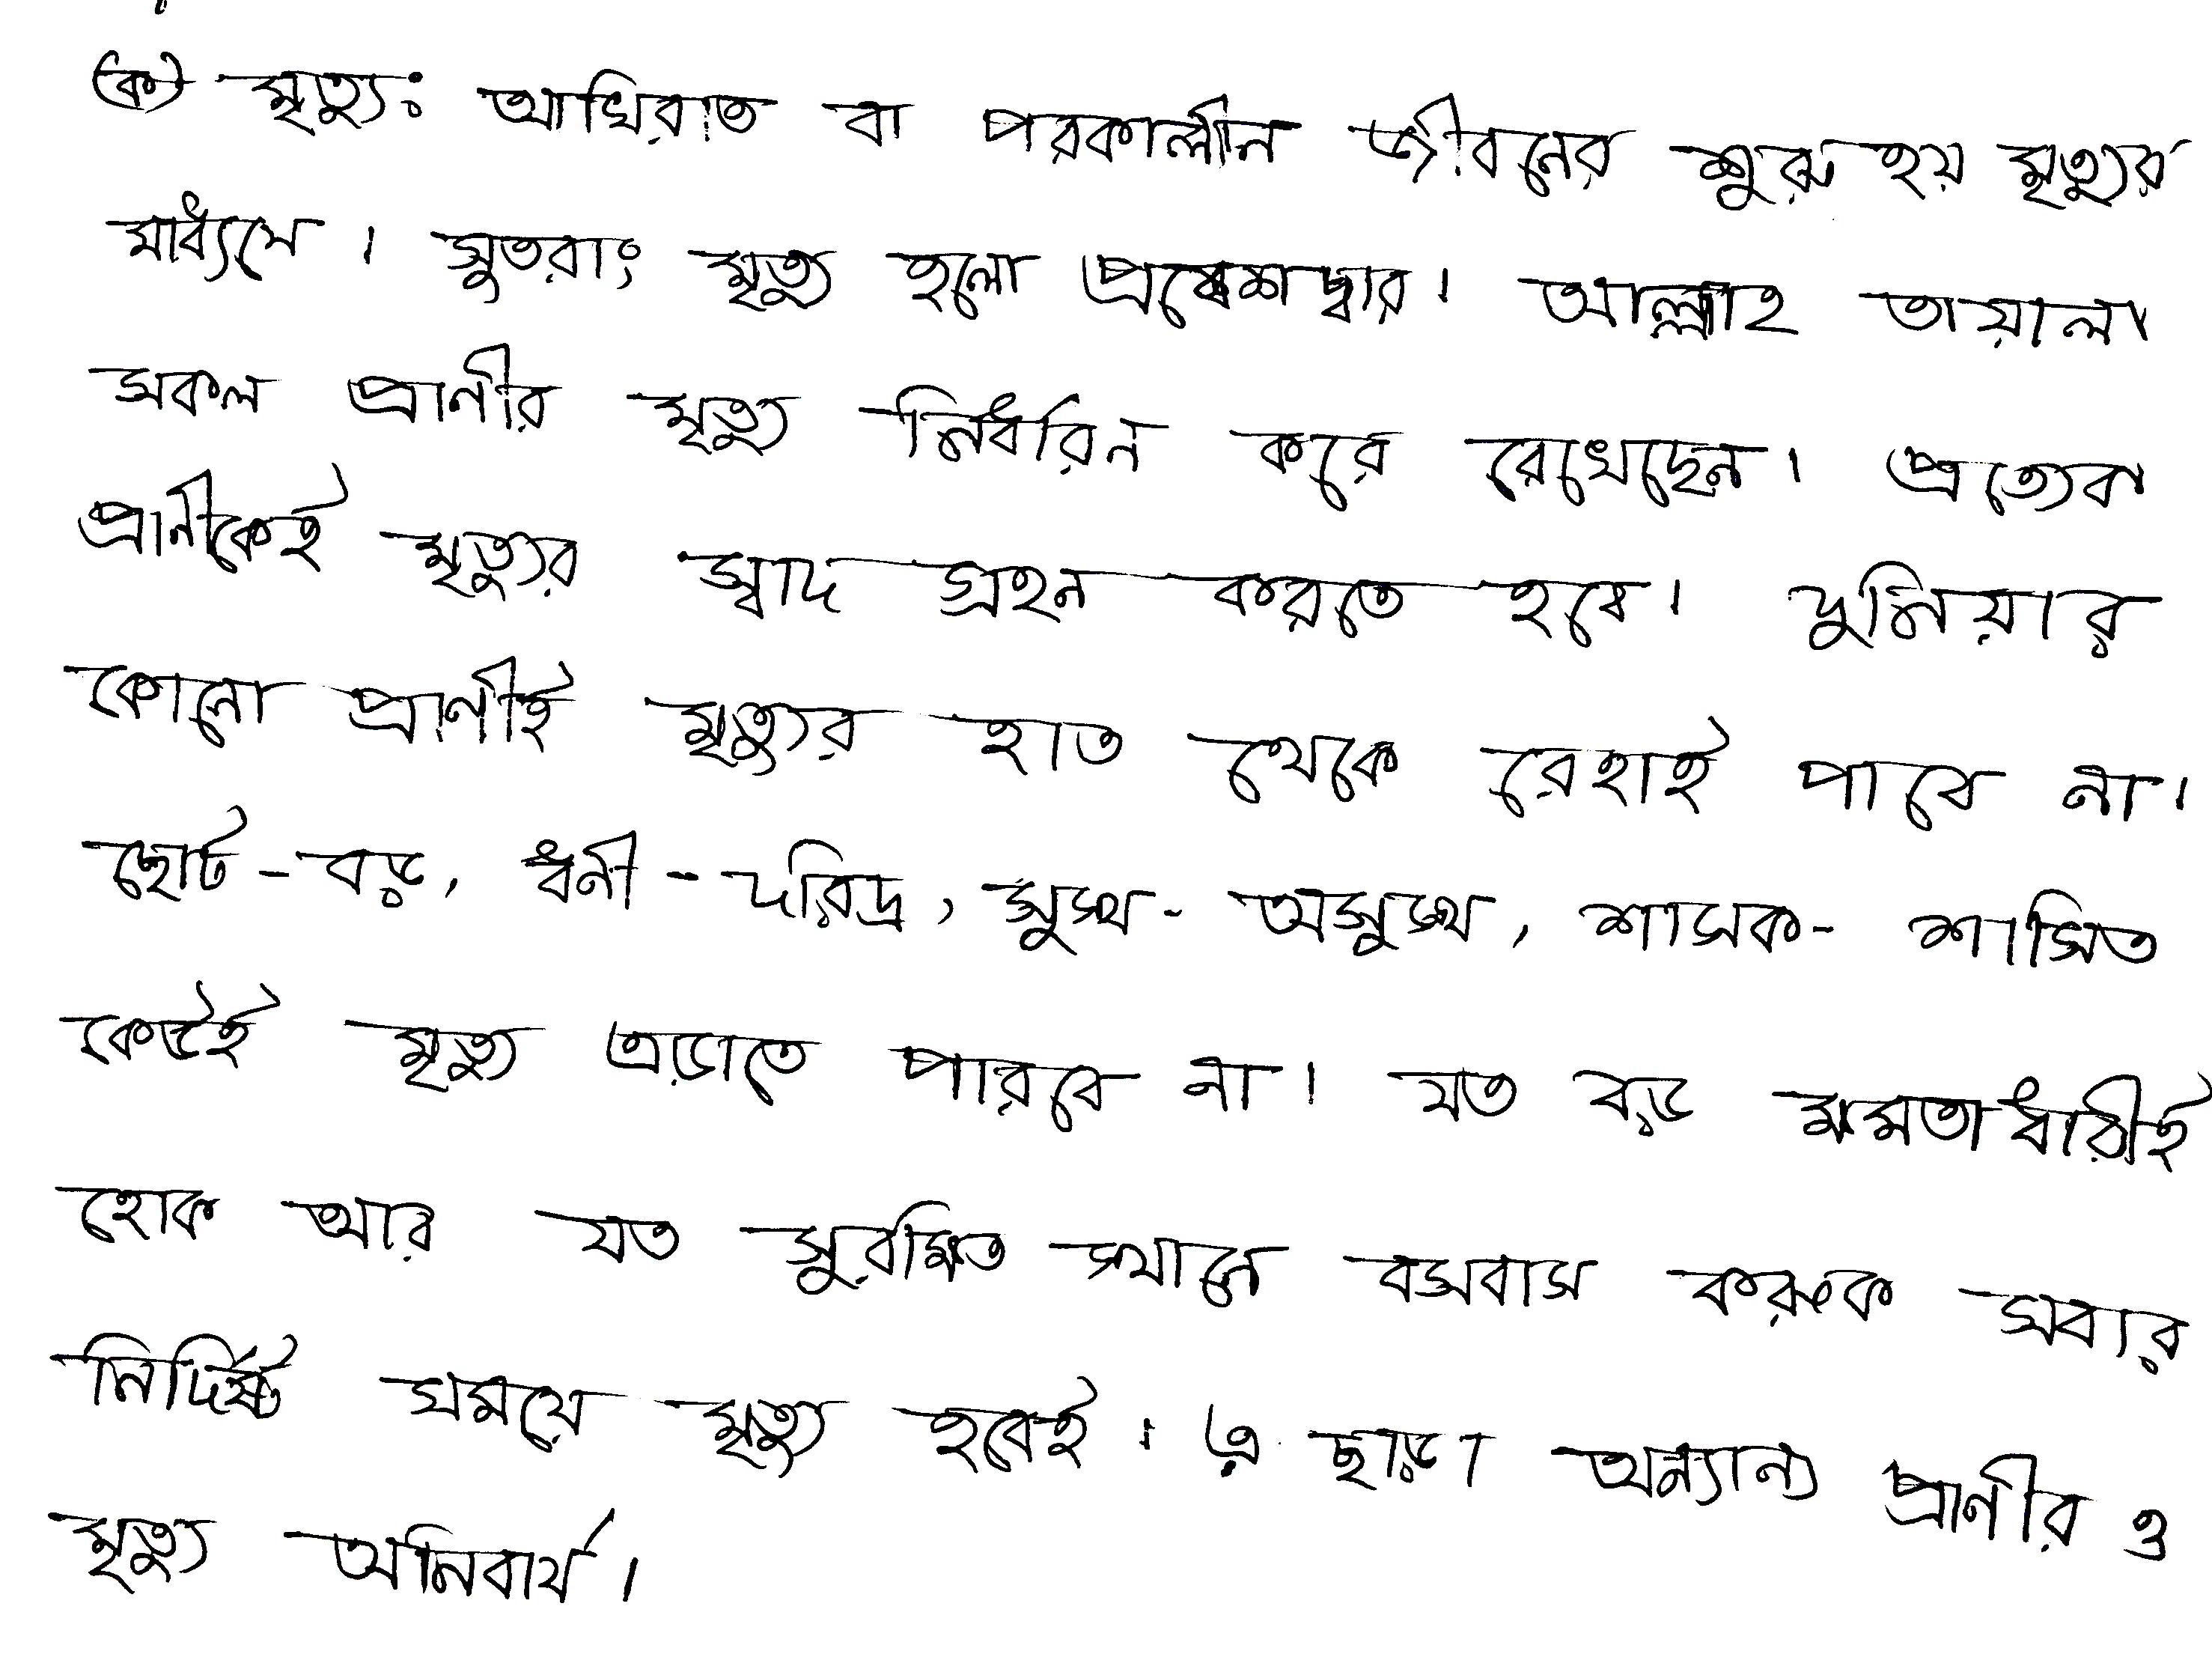 (ক) মৃত্যুঃ আখিরাত বা পরকালীন জীবনের শুরু হয় মৃত্যুর
মাধ্যমে। সুতরাং মৃত্যু হলো প্রবেশদ্বার। আল্লাহ তায়ালা
সকল প্রানীর মৃত্যু নির্ধারন করে রেখেছেন। প্রত্যেক
প্রানীকেই মৃত্যুর স্বাদ গ্রহন করতে হবে। দুনিয়ার
কোনো প্রাণীই মৃত্যুর হাত থেকে রেহাই পাবে না।
ছোট-বড়, ধনী-দরিদ্র, সুস্থ-অসুস্থ, শাসক-শাসিত
কেউই মৃত্যু এড়াতে পারবে না। যত বড় ক্ষমতাধারীই
হোক আর যত সুরক্ষিত স্থানে বসবাস করুক সবার
নির্দিষ্ট সময়ে মৃত্যু হবেই। এ ছাড়া অন্যান্য প্রাণীর ও
মৃত্যু অনিবার্য।